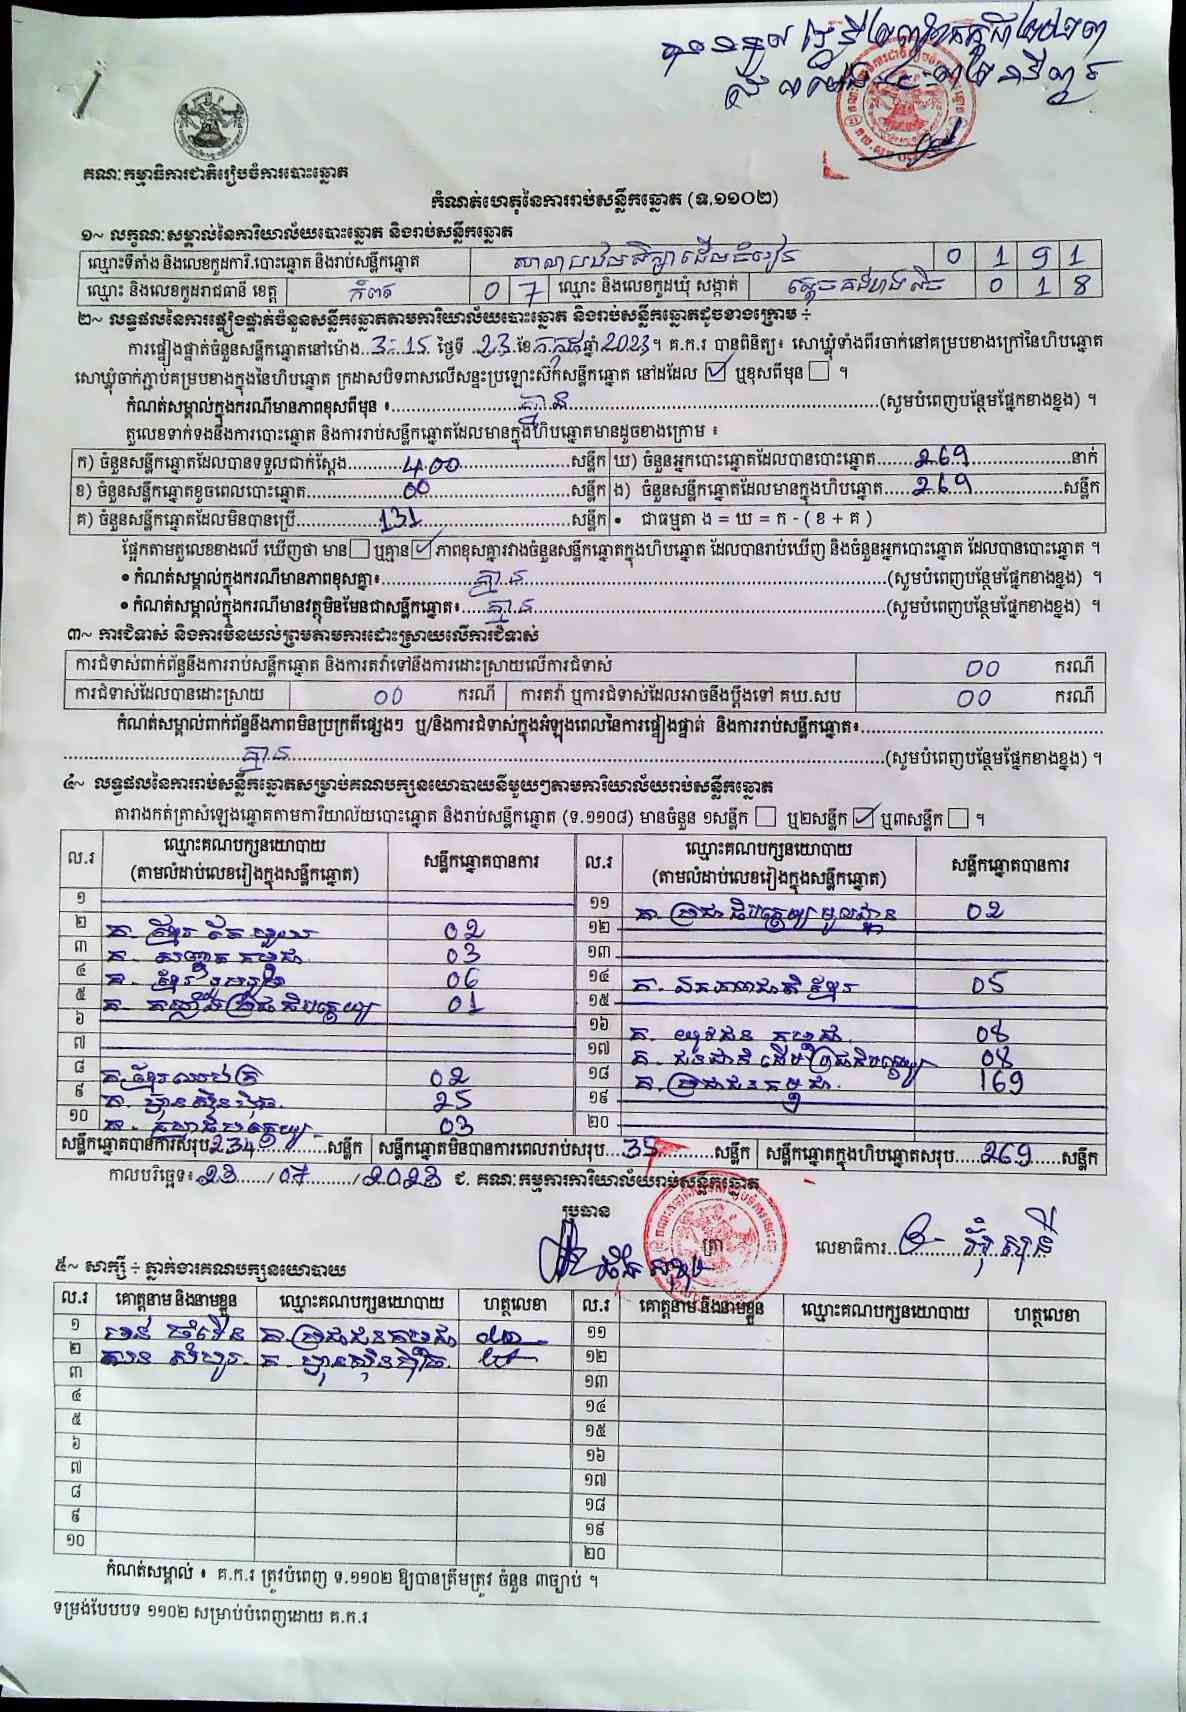 គណៈកម្មាធិការជាតិរៀបចំការបោះឆ្នោត
កំណត់ហេតុនៃការរាប់សន្លឹកឆ្នោត (ទ.១១០២)
១~ លក្ខណៈសម្គាល់នៃការិយាល័យបោះឆ្នោត និងរាប់សន្លឹកឆ្នោត
ឈ្មោះទីតាំង និងលេខកូដការិ.បោះឆ្នោត និងរាប់សន្លឹកឆ្នោត 0 1 9 1
ឈ្មោះ និងលេខកូដរាជធានី ខេត្ត កំពត 0 7 ឈ្មោះ និងលេខកូដឃុំ សង្កាត់ 0 1 8
២~ លទ្ធផលនៃការផ្ទៀងផ្ទាត់ចំនួនសន្លឹកឆ្នោតតាមការិយាល័យបោះឆ្នោត និងរាប់សន្លឹកឆ្នោតដូចខាងក្រោម ÷
ការផ្ទៀងផ្ទាត់ចំនួនសន្លឹកឆ្នោតនៅម៉ោង 3:15 ថ្ងៃទី 23 ខែ កក្កដា ឆ្នាំ 2023 ។ គ.ក.រ បានពិនិត្យ៖ សោឃ្លុំទាំងពីរចាក់នៅគម្របខាងក្រៅនៃហិបឆ្នោត
សោឃ្លុំចាក់ភ្ជាប់គម្របខាងក្នុងនៃហិបឆ្នោត ក្រដាសបិទពាសលើសន្ទះប្រឡោះស៊កសន្លឹកឆ្នោត នៅដដែល ☑ ឬខុសពីមុន ☐ ។
កំណត់សម្គាល់ក្នុងករណីមានភាពខុសពីមុន ៖ គ្មាន (សូមបំពេញបន្ថែមផ្នែកខាងខ្នង) ។
តួលេខទាក់ទងនឹងការបោះឆ្នោត និងការរាប់សន្លឹកឆ្នោតដែលមានក្នុងហិបឆ្នោតមានដូចខាងក្រោម ៖
ក) ចំនួនសន្លឹកឆ្នោតដែលបានទទួលជាក់ស្តែង 400 សន្លឹក ឃ) ចំនួនអ្នកបោះឆ្នោតដែលបានបោះឆ្នោត 269 នាក់
ខ) ចំនួនសន្លឹកឆ្នោតខូចពេលបោះឆ្នោត 00 សន្លឹក ង) ចំនួនសន្លឹកឆ្នោតដែលមានក្នុងហិបឆ្នោត 269 សន្លឹក
គ) ចំនួនសន្លឹកឆ្នោតដែលមិនបានប្រើ 131 សន្លឹក • ជាធម្មតា ង = ឃ = ក - ( ខ + គ )
ផ្អែកតាមតួលេខខាងលើ ឃើញថា មាន ☐ ឬគ្មាន ☑ ភាពខុសគ្នារវាងចំនួនសន្លឹកឆ្នោតក្នុងហិបឆ្នោត ដែលបានរាប់ឃើញ និងចំនួនអ្នកបោះឆ្នោត ដែលបានបោះឆ្នោត ។
• កំណត់សម្គាល់ក្នុងករណីមានភាពខុសគ្នា៖ គ្មាន (សូមបំពេញបន្ថែមផ្នែកខាងខ្នង) ។
• កំណត់សម្គាល់ក្នុងករណីមានវត្ថុមិនមែនជាសន្លឹកឆ្នោត៖ គ្មាន (សូមបំពេញបន្ថែមផ្នែកខាងខ្នង) ។
៣~ ការជំទាស់ និងការមិនយល់ព្រមតាមការដោះស្រាយលើការជំទាស់
ការជំទាស់ពាក់ព័ន្ធនឹងការរាប់សន្លឹកឆ្នោត និងការតវ៉ាទៅនឹងការដោះស្រាយលើការជំទាស់ 00 ករណី
ការជំទាស់ដែលបានដោះស្រាយ 00 ករណី ការតវ៉ា ឬការជំទាស់ដែលអាចនឹងប្តឹងទៅ គឃ.សប 00 ករណី
កំណត់សម្គាល់ពាក់ព័ន្ធនឹងភាពមិនប្រក្រតីផ្សេងៗ ឬ/និងការជំទាស់ក្នុងអំឡុងពេលនៃការផ្ទៀងផ្ទាត់ និងការរាប់សន្លឹកឆ្នោត៖
គ្មាន (សូមបំពេញបន្ថែមផ្នែកខាងខ្នង) ។
៤~ លទ្ធផលនៃការរាប់សន្លឹកឆ្នោតសម្រាប់គណបក្សនយោបាយនីមួយៗតាមការិយាល័យរាប់សន្លឹកឆ្នោត
តារាងកត់ត្រាសំឡេងឆ្នោតតាមការិយាល័យបោះឆ្នោត និងរាប់សន្លឹកឆ្នោត (ទ.១១០៨) មានចំនួន ១សន្លឹក ☐ ឬ២សន្លឹក ☑ ឬ៣សន្លឹក ☐ ។
ល.រ ឈ្មោះគណបក្សនយោបាយ (តាមលំដាប់លេខរៀងក្នុងសន្លឹកឆ្នោត) សន្លឹកឆ្នោតបានការ ល.រ ឈ្មោះគណបក្សនយោបាយ (តាមលំដាប់លេខរៀងក្នុងសន្លឹកឆ្នោត) សន្លឹកឆ្នោតបានការ
១ ១១ គ. ប្រជាធិបតេយ្យមូលដ្ឋាន 02
២ 02 ១២
៣ 03 ១៣
៤ គ. ខ្មែររួបរួម 06 ១៤ គ. ឯកភាពជាតិខ្មែរ 05
៥ គ. កម្លាំងប្រជាធិបតេយ្យ 01 ១៥
៦ ១៦ គ. យុវជនកម្ពុជា 08
៧ ១៧ គ. ជនជាតិដើមប្រជាធិបតេយ្យ 08
៨ 02 ១៨ គ. ប្រជាជនកម្ពុជា 169
៩ គ. ហ៊្វុនស៊ិនប៉ិច 25 ១៩
១០ 03 ២០
សន្លឹកឆ្នោតបានការសរុប 234 សន្លឹក សន្លឹកឆ្នោតមិនបានការពេលរាប់សរុប 35 សន្លឹក សន្លឹកឆ្នោតក្នុងហិបឆ្នោតសរុប 269 សន្លឹក
កាលបរិច្ឆេទ៖ 23 / 07 / 2023 ជ. គណៈកម្មការការិយាល័យរាប់សន្លឹកឆ្នោត
ប្រធាន
ត្រា លេខាធិការ
៥~ សាក្សី ÷ ភ្នាក់ងារគណបក្សនយោបាយ
ល.រ គោត្តនាម និងនាមខ្លួន ឈ្មោះគណបក្សនយោបាយ ហត្ថលេខា ល.រ គោត្តនាម និងនាមខ្លួន ឈ្មោះគណបក្សនយោបាយ ហត្ថលេខា
១ គ. ប្រជាជនកម្ពុជា ១១
២ គ. ហ៊្វុនស៊ិនប៉ិច ១២
៣ ១៣
៤ ១៤
៥ ១៥
៦ ១៦
៧ ១៧
៨ ១៨
៩ ១៩
១០ ២០
កំណត់សម្គាល់ ៖ គ.ក.រ ត្រូវបំពេញ ទ.១១០២ ឱ្យបានត្រឹមត្រូវ ចំនួន ៣ច្បាប់ ។
ទម្រង់បែបបទ ១១០២ សម្រាប់បំពេញដោយ គ.ក.រ